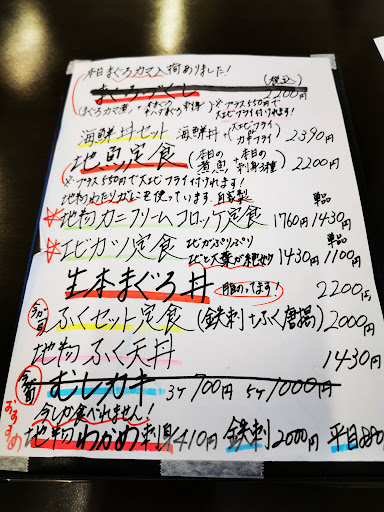 本日まぐろカマ入荷ありました！
まぐろづくし (税込) 2200円
(まぐろカマ煮 + 刺身) ※プラス550円で大エビフライ付けれます！
海鮮丼セット 海鮮丼 + (大エビフライ or カキフライ) 2390円
地魚定食 (本日の煮魚 + 本日の刺身3種) 2200円
※プラス550円で大エビフライ付けれます！
地物わたりガニを使っています。自家製
☆地物カニクリームコロッケ定食 1760円 単品1430円
☆エビカツ定食 エビがぷりぷり エビと大葉が絶妙 1430円 単品1100円
生本まぐろ丼 脂のってます！ 2200円
今が旬 ふくセット定食 (鉄刺+ふく唐揚) 2000円
地物ふく天丼 1430円
むしカキ 3ケ700円 5ケ1000円
今しか食べれません！
おすすめ 地物わかめ刺身 410円 鉄刺 2000円 平目